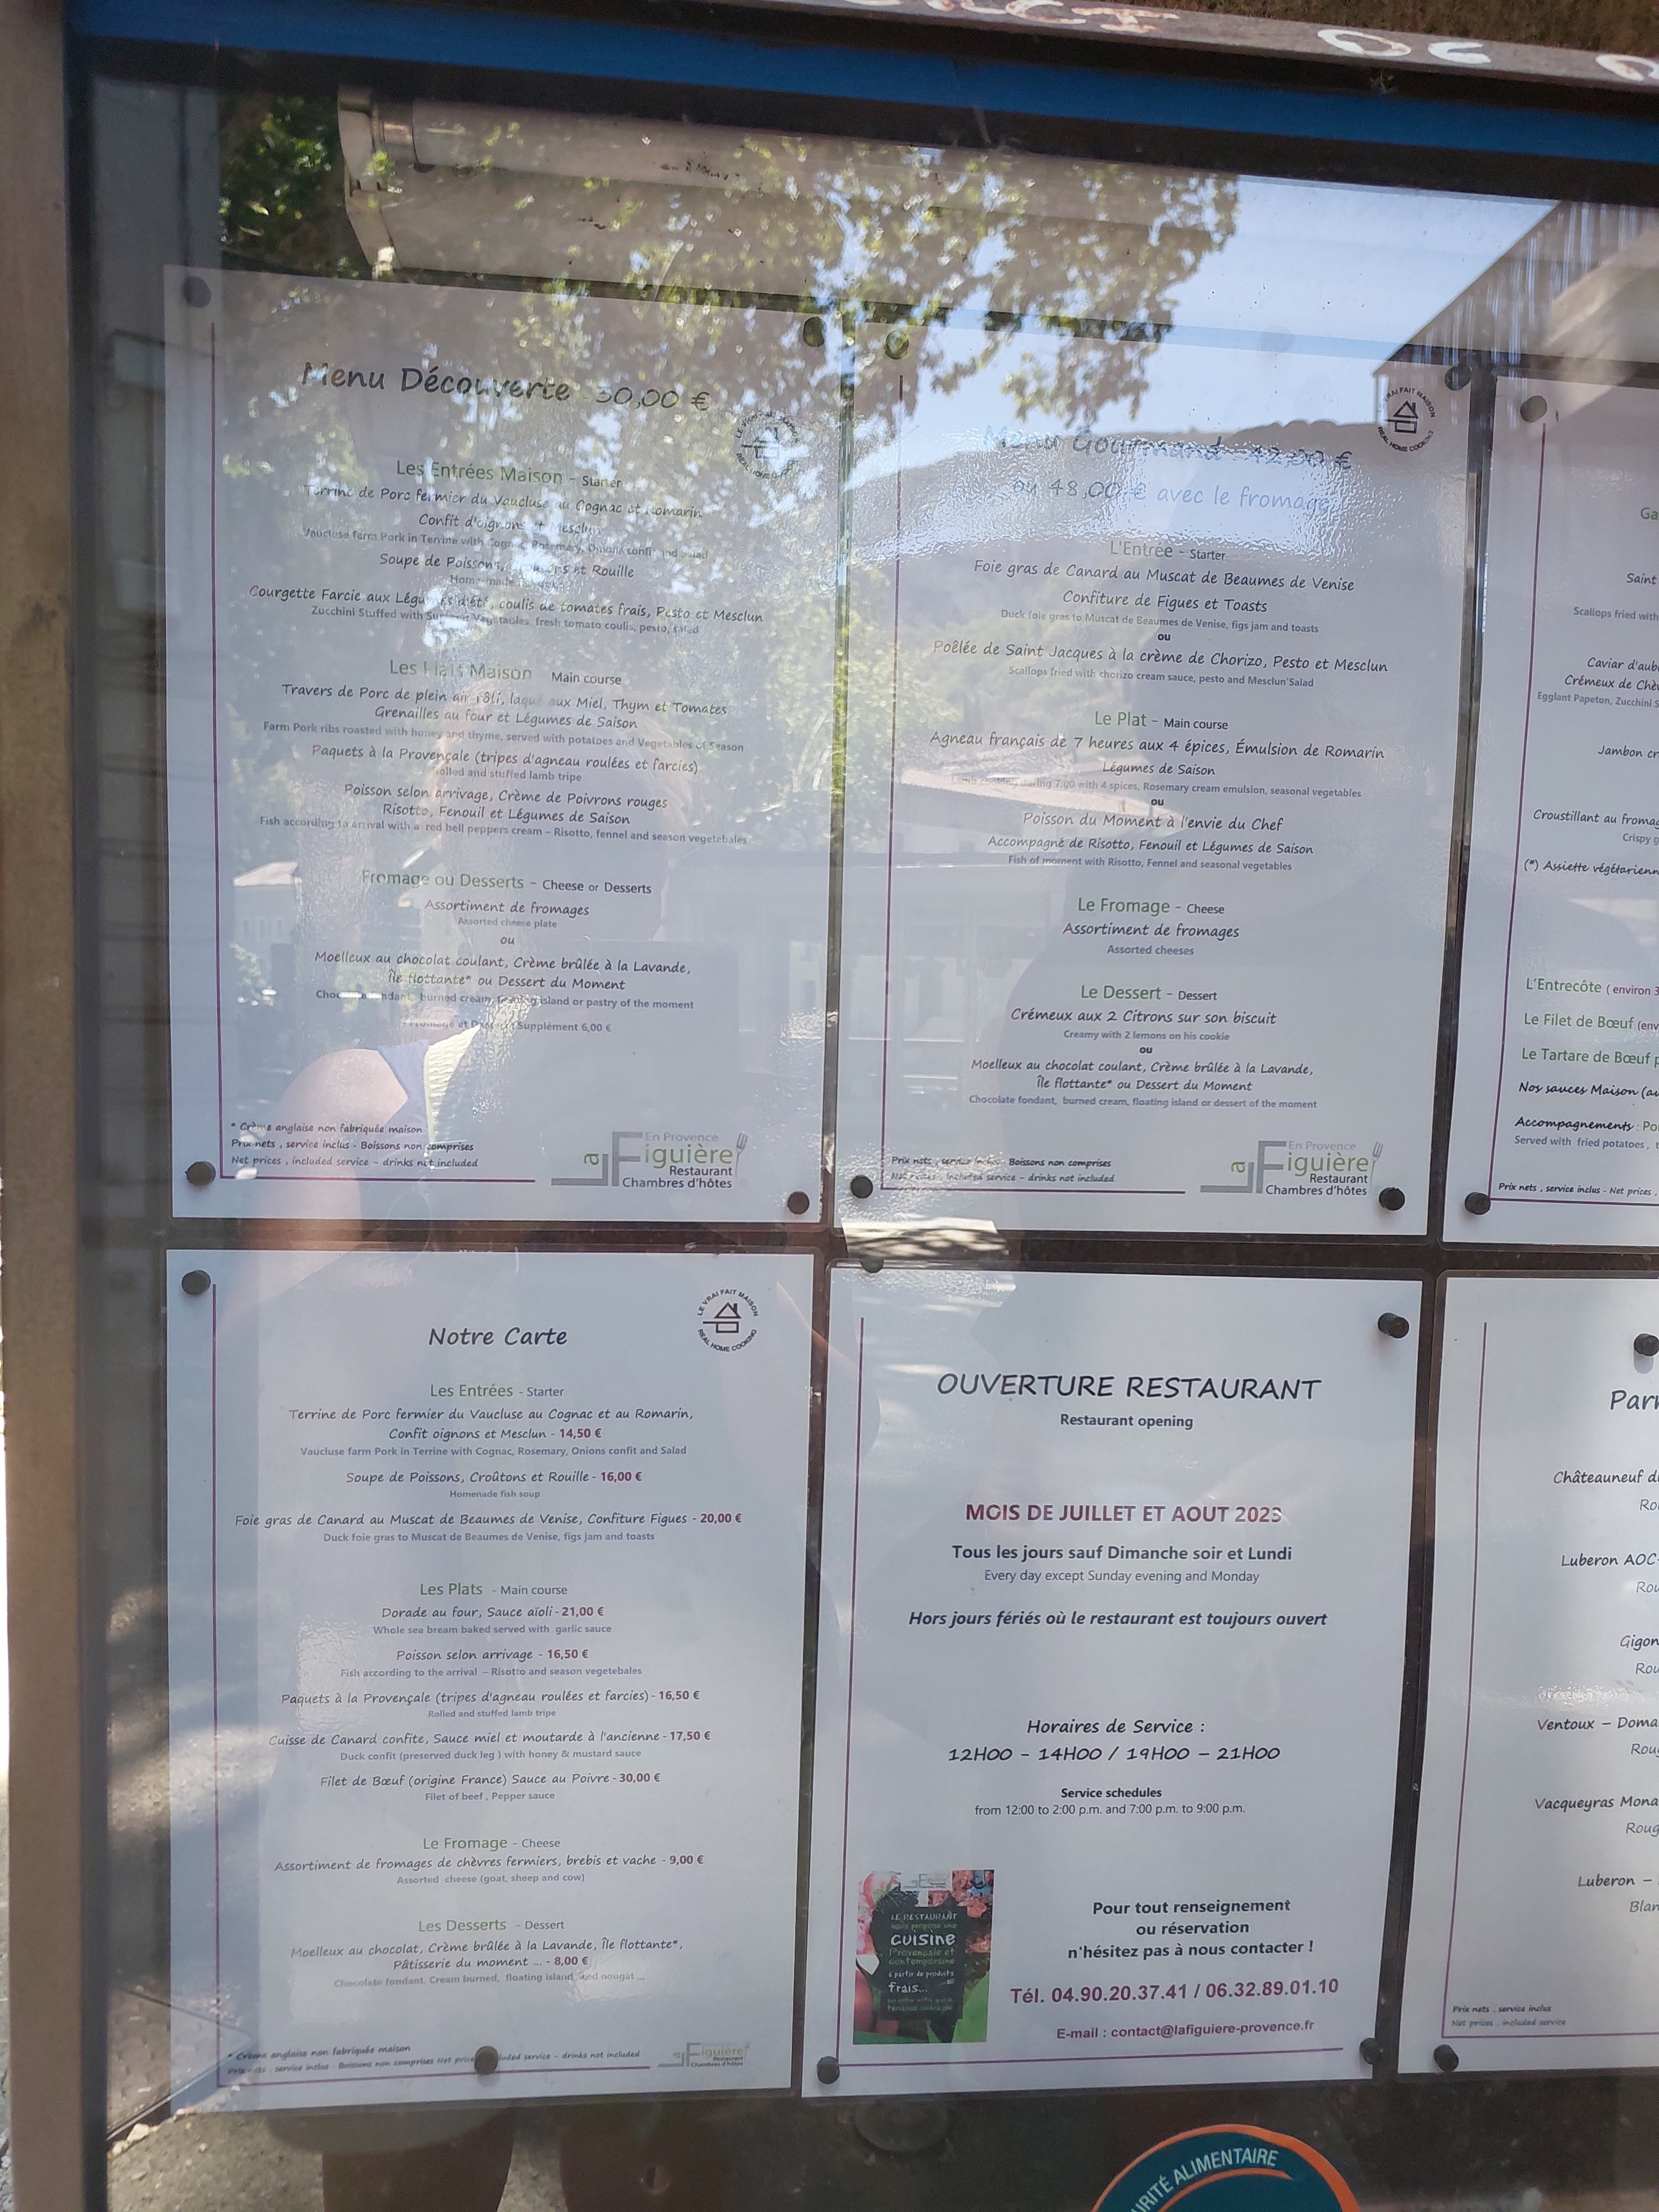 Menu Découverte 30,00 €
LE VRAI FAIT MAISON
REAL HOME COOKING
Les Entrées Maison - Starter
Terrine de Porc fermier du Vaucluse au Cognac et Romarin
Confit d'oignons et Mesclun
Vaucluse farm Pork in Terrine with Cognac, Rosemary, Onions confit and Salad
Soupe de Poissons, et Rouille
Courgette Farcie aux Légumes d'été, coulis de tomates frais, Pesto et Mesclun
Zucchini Stuffed with Summer Vegetables, fresh tomato coulis, pesto, salad
Les Plats Maison Main course
Travers de Porc de plein air rôti, laqué aux Miel, Thym et Tomates
Grenailles au four et Légumes de Saison
Farm Pork ribs roasted with honey and thyme, served with potatoes and Vegetables of Season
Paquets à la Provençale (tripes d'agneau roulées et farcies)
Rolled and stuffed lamb tripe
Poisson selon arrivage, Crème de Poivrons rouges
Risotto, Fenouil et Légumes de Saison
Fish according to arrival with a red bell peppers cream – Risotto, fennel and season vegetebales
Fromage ou Desserts - Cheese or Desserts
Assortiment de fromages
Assorted cheese plate
ou
Moelleux au chocolat coulant, Crème brûlée à la Lavande,
Île flottante* ou Dessert du Moment
burned cream, island or pastry of the moment
Fromage et Dessert Supplément 6,00 €
* Crème anglaise non fabriquée maison
Prix nets , service inclus - Boissons non comprises
Net prices , included service – drinks not included
En Provence
la Figuière
Restaurant
Chambres d'hôtes
Menu Gourmand - 42,00 €
ou 48,00 € avec le fromage
LE VRAI FAIT MAISON
REAL HOME COOKING
L'Entrée - Starter
Foie gras de Canard au Muscat de Beaumes de Venise
Confiture de Figues et Toasts
Duck foie gras to Muscat de Beaumes de Venise, figs jam and toasts
ou
Poêlée de Saint Jacques à la crème de Chorizo, Pesto et Mesclun
Scallops fried with chorizo cream sauce, pesto and Mesclun'Salad
Le Plat - Main course
Agneau français de 7 heures aux 4 épices, Émulsion de Romarin
Légumes de Saison
during 7.00 with 4 spices, Rosemary cream emulsion, seasonal vegetables
ou
Poisson du Moment à l'envie du Chef
Accompagné de Risotto, Fenouil et Légumes de Saison
Fish of moment with Risotto, Fennel and seasonal vegetables
Le Fromage - Cheese
Assortiment de fromages
Assorted cheeses
Le Dessert - Dessert
Crémeux aux 2 Citrons sur son biscuit
Creamy with 2 lemons on his cookie
ou
Moelleux au chocolat coulant, Crème brûlée à la Lavande,
Île flottante* ou Dessert du Moment
Chocolate fondant, burned cream, floating island or dessert of the moment
Prix nets , service inclus - Boissons non comprises
Net prices , included service – drinks not included
En Provence
la Figuière
Restaurant
Chambres d'hôtes
Ga
Saint
Scallops fried with
Caviar d'aub
Crémeux de Chèv
Eggplant Papeton, Zucchini S
Jambon cr
Croustillant au fromag
Crispy g
(*) Assiette végétarienn
L'Entrecôte ( environ 3
Le Filet de Bœuf (env
Le Tartare de Bœuf p
Nos sauces Maison (au
Accompagnements : Po
Served with fried potatoes ,
Prix nets , service inclus - Net prices ,
Notre Carte
LE VRAI FAIT MAISON
REAL HOME COOKING
Les Entrées - Starter
Terrine de Porc fermier du Vaucluse au Cognac et au Romarin,
Confit oignons et Mesclun - 14,50 €
Vaucluse farm Pork in Terrine with Cognac, Rosemary, Onions confit and Salad
Soupe de Poissons, Croûtons et Rouille - 16,00 €
Homenade fish soup
Foie gras de Canard au Muscat de Beaumes de Venise, Confiture Figues - 20,00 €
Duck foie gras to Muscat de Beaumes de Venise, figs jam and toasts
Les Plats - Main course
Dorade au four, Sauce aïoli - 21,00 €
Whole sea bream baked served with garlic sauce
Poisson selon arrivage - 16,50 €
Fish according to the arrival – Risotto and season vegetebales
Paquets à la Provençale (tripes d'agneau roulées et farcies) - 16,50 €
Rolled and stuffed lamb tripe
Cuisse de Canard confite, Sauce miel et moutarde à l'ancienne - 17,50 €
Duck confit (preserved duck leg ) with honey & mustard sauce
Filet de Bœuf (origine France) Sauce au Poivre - 30,00 €
Filet of beef , Pepper sauce
Le Fromage - Cheese
Assortiment de fromages de chèvres fermiers, brebis et vache - 9,00 €
Assorted cheese (goat, sheep and cow)
Les Desserts - Dessert
Moelleux au chocolat, Crème brûlée à la Lavande, Île flottante*,
Pâtisserie du moment ... - 8,00 €
Chocolate fondant, Cream burned, floating island, iced nougat ...
* Crème anglaise non fabriquée maison
Prix nets , service inclus - Boissons non comprises Net prices included service - drinks not included
la Figuière
Restaurant
Chambres d'hôtes
OUVERTURE RESTAURANT
Restaurant opening
MOIS DE JUILLET ET AOUT 2023
Tous les jours sauf Dimanche soir et Lundi
Every day except Sunday evening and Monday
Hors jours fériés où le restaurant est toujours ouvert
Horaires de Service :
12H00 - 14H00 / 19H00 - 21H00
Service schedules
from 12:00 to 2:00 p.m. and 7:00 p.m. to 9:00 p.m.
LE RESTAURANT
vous propose une
cuisine
Provençale et
contemporaine
à partir de produits
frais...
Pour tout renseignement
ou réservation
n'hésitez pas à nous contacter !
Tél. 04.90.20.37.41 / 06.32.89.01.10
E-mail : contact@lafiguiere-provence.fr
Parm
Châteauneuf d
Ro
Luberon AOC-
Rou
Gigon
Rou
Ventoux – Doma
Roug
Vacqueyras Mona
Roug
Luberon –
Blan
Prix nets , service inclus
Net prices , included service
URITÉ ALIMENTAIRE